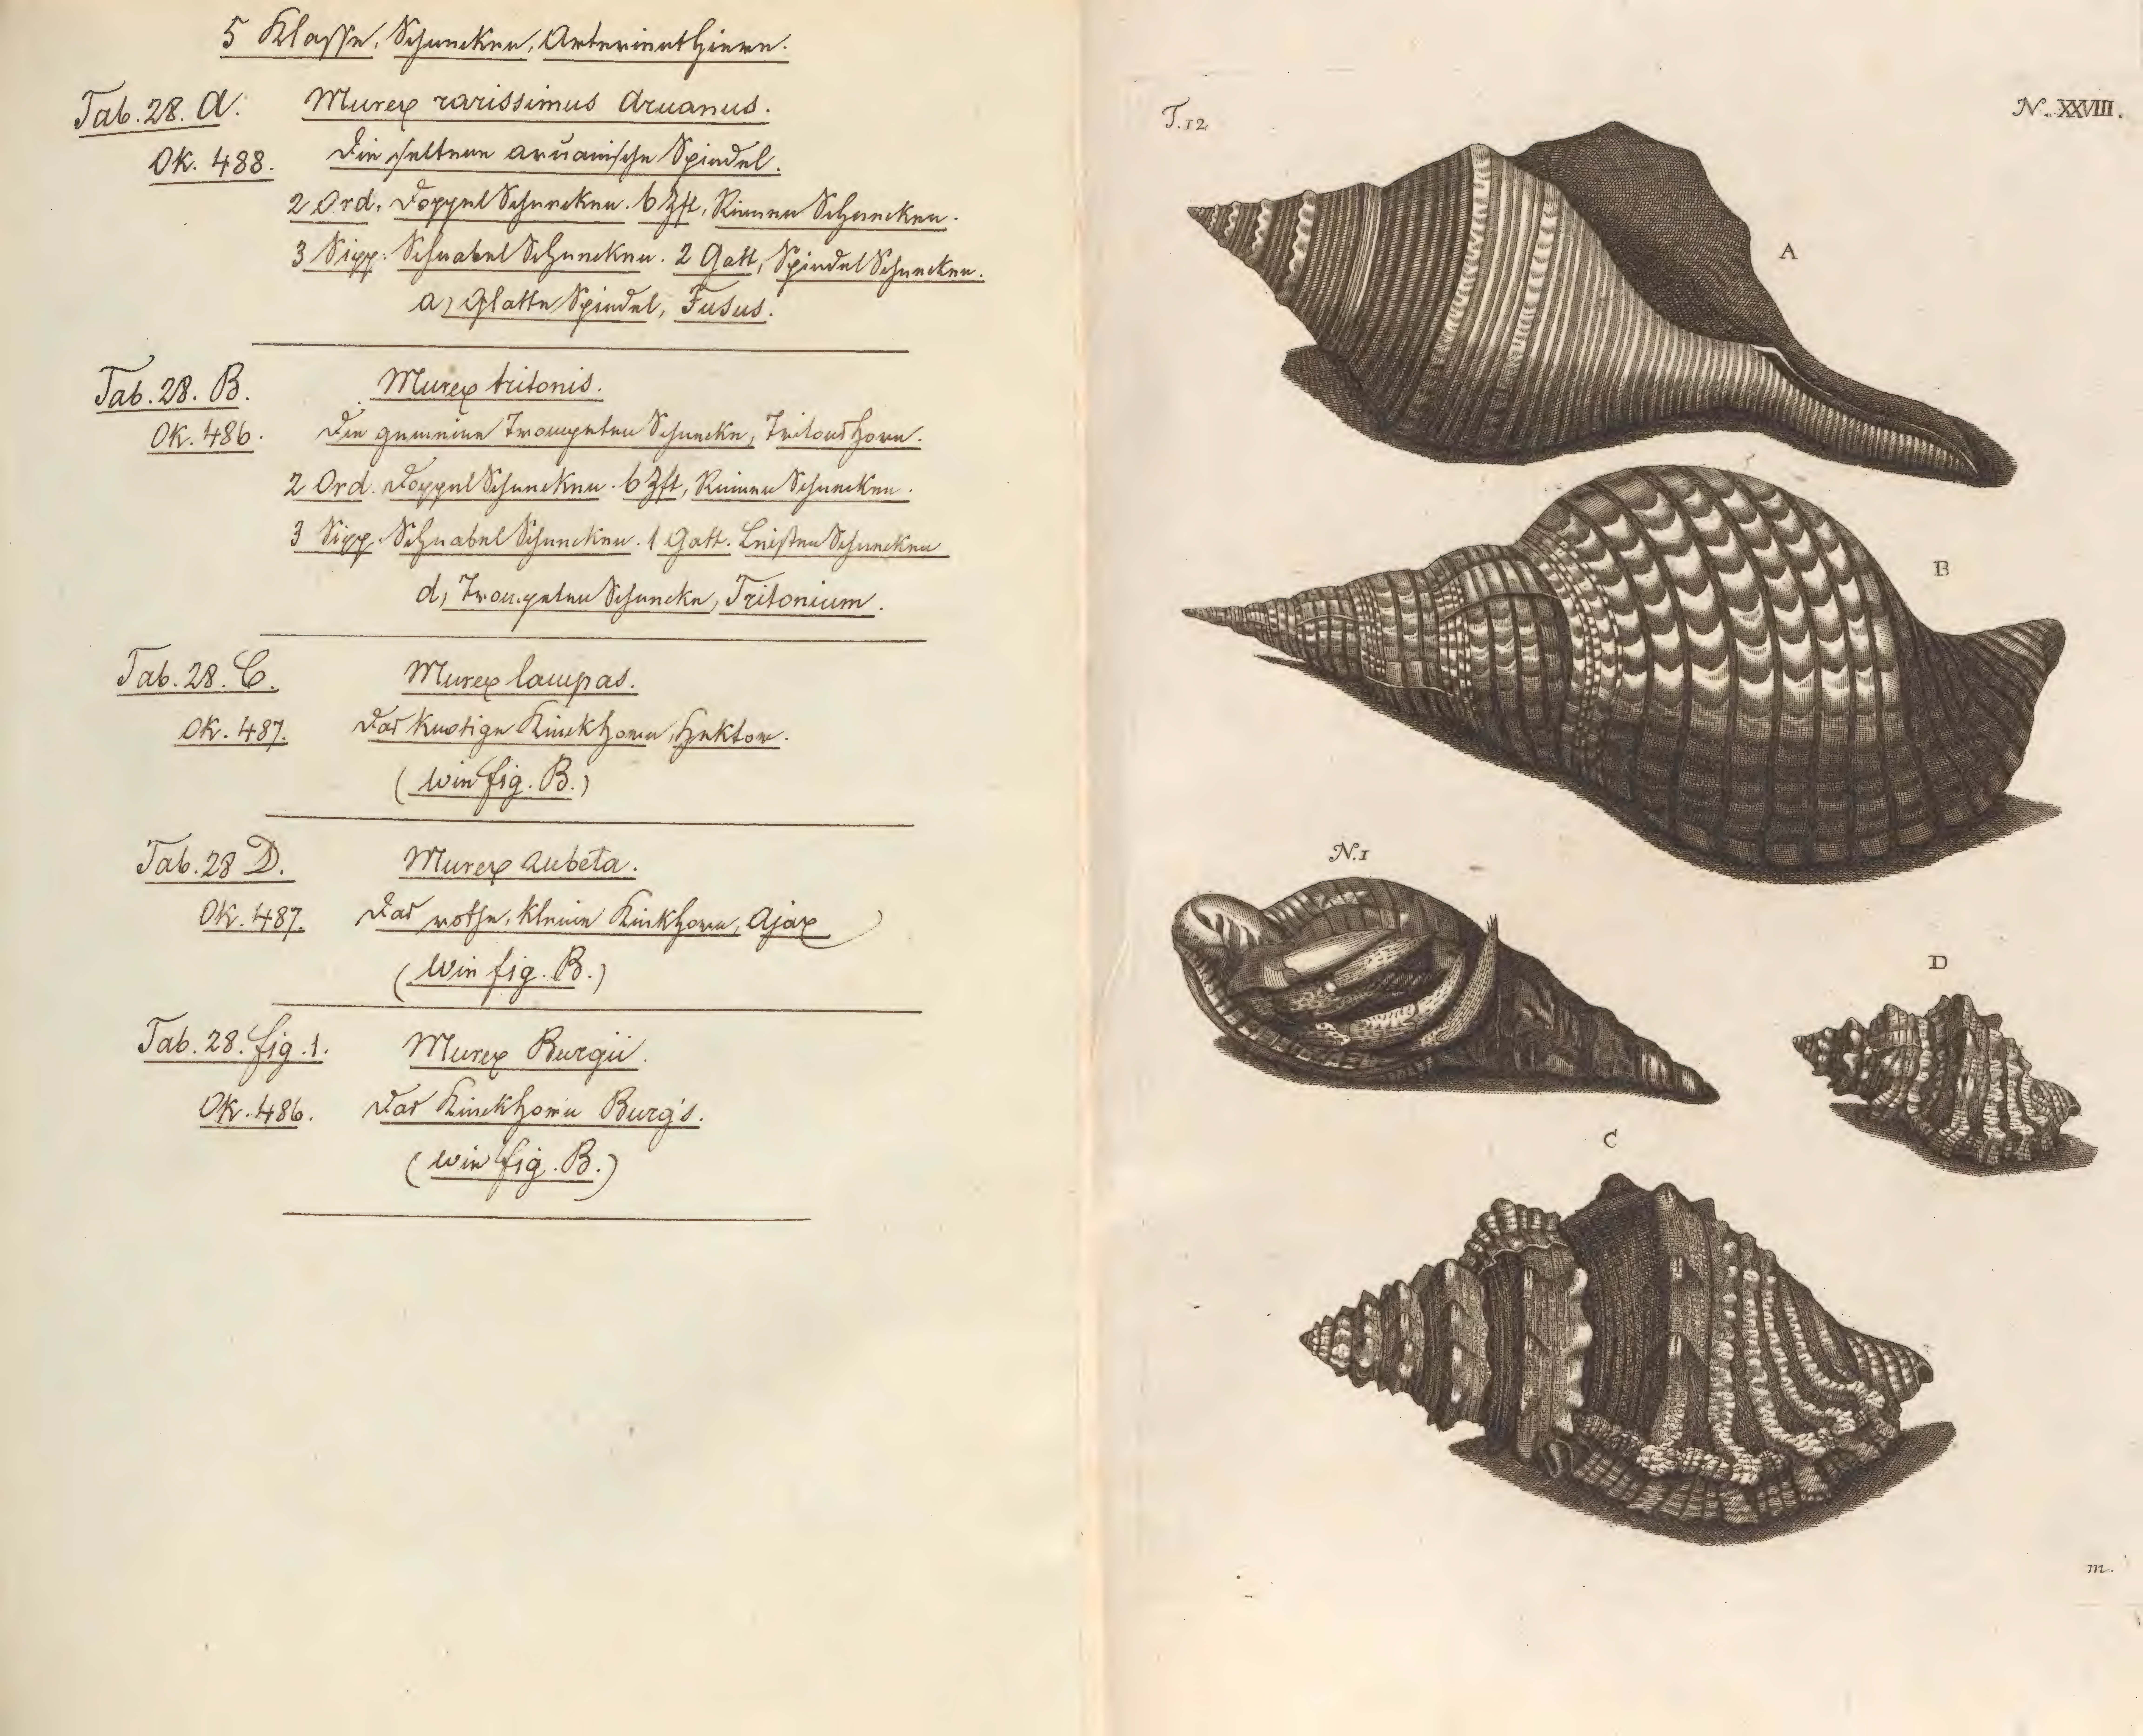 5 Klasse, Schnecken, Arterienthiere.
Tab. 28. A. Murex rarissimus Aruanus.
OK. 488. Die seltene aruanische Spindel.
2 Ord. Doppel Schnecken. 6 Zft, Rinnen Schnecken.
3 Sipp. Schnabel Schnecken. 2 Gatt, Spindel Schnecken.
a) Glatte Spindel, Fusus.
Tab. 28. B. Murex tritonis.
OK. 486. Die gemeine Trompeten Schnecke, Tritons Horn.
2 Ord. Doppel Schnecken. 6 Zft, Rinnen Schnecken.
3 Sipp. Schnabel Schnecken. 1 Gatt. Leisten Schnecken
d, Trompeten Schnecke, Tritonium.
Tab. 28. C. Murex lampas.
OK. 487. Das knotige Kinckhorn, Hektor.
(wie fig. B.)
Tab. 28 D. Murex Rubeta.
OK. 487. Das rothe, kleine Kinkhorn, Ajax
(Wie fig. B.)
Tab. 28. fig. 1. Murex Burgii.
OK. 486. Das Kinckhorn Burg's.
(wie fig. B.)
T.12
N. XXVIII.
A
B
N.1
D
C
m.